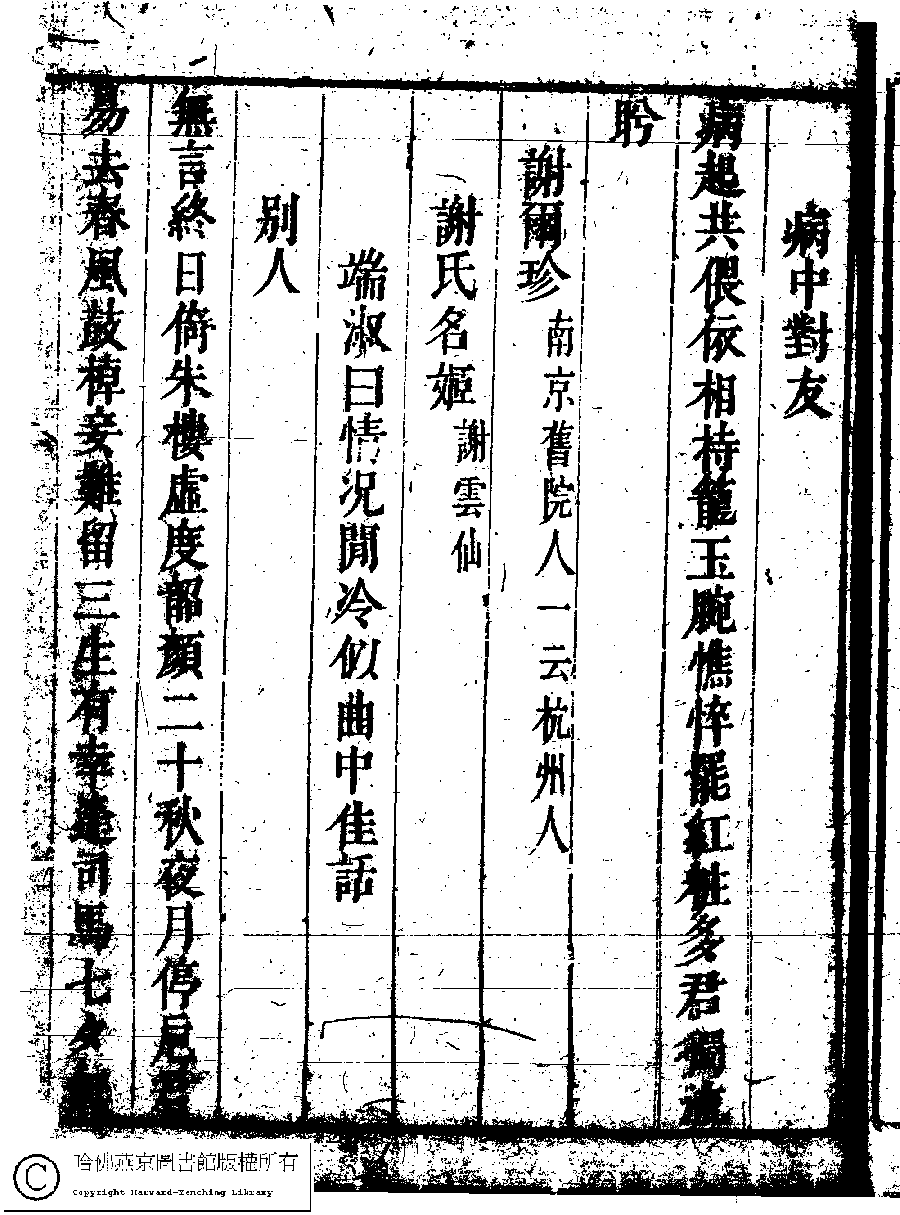 病中對友
病起共偎依相持籠玉腕憔悴罷紅粧多君獨
盻
謝爾珍 南京舊院人一云杭州人
謝氏名姬 謝雲仙
端淑曰情況閒冷似曲中佳話
別人
無言終日倚朱樓虛度韶顏二十秋夜月停卮君
易去春風鼓棹妾難留三生有幸逢司馬七夕
哈佛燕京圖書館版權所有
Copyright Harvard-Yenching Library